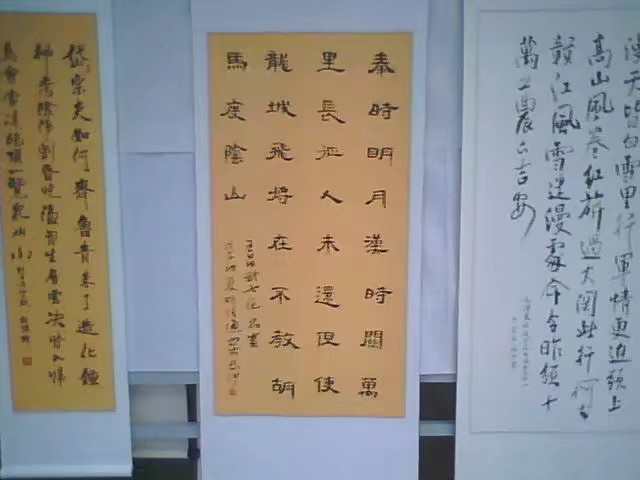 漫天皆白雪里行軍情更迫頭上
高山風卷紅旗過大關此行何去
贛江風雪迷漫處命令昨頒十
萬工農下吉安
秦時明月漢時關萬
里長征人未還但使
龍城飛將在不教胡
馬度陰山
岱宗夫如何齊魯青未了造化鐘
神秀陰陽割昏曉盪胸生層雲決眥入歸
鳥會當凌絕頂一覽衆山小